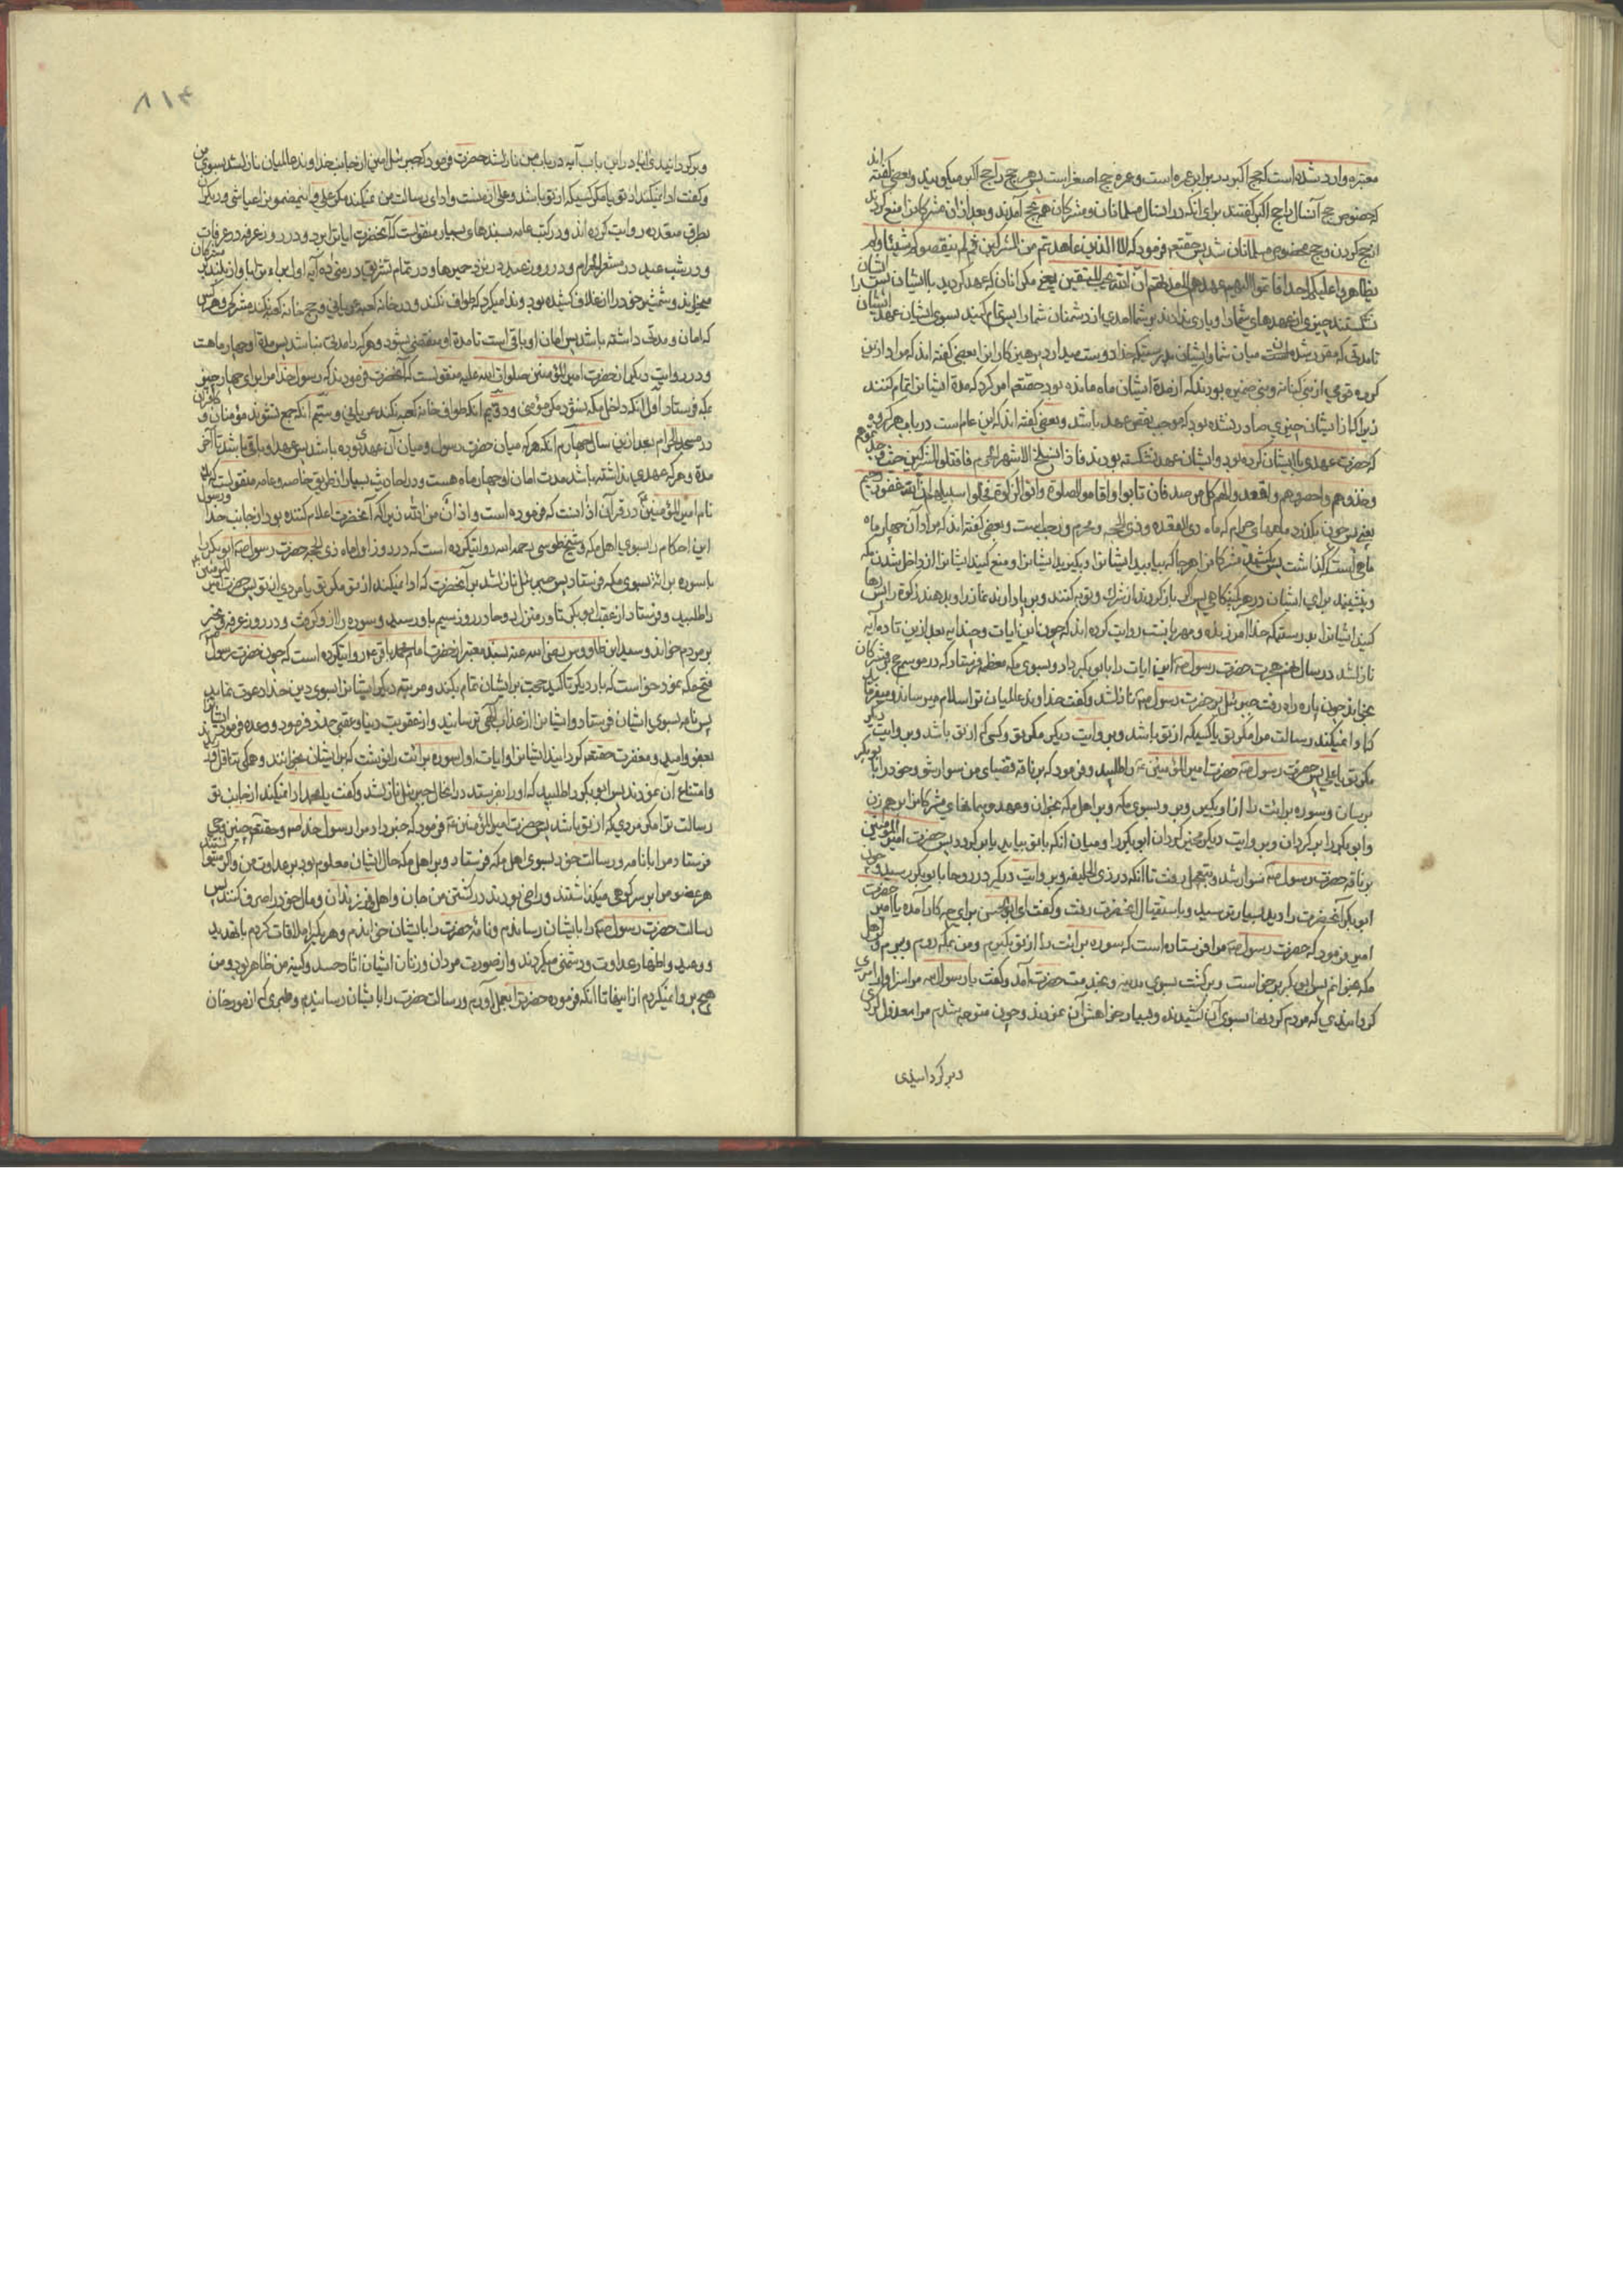 معتبره وارد شده است که حج اکبر در برابر عمره است و عمره حج اصغر است پس هر حج را حج اکبر میگویند و بعضی گفته اند
که خصوص حج آنسال را حج اکبر گفتند برای انکه در انسال مسلمانان و مشرکان همه بحج آمدند و بعد از ان مشرکانرا منع کردند
از حج کردن و حج مخصوص مسلمانان شد پس حقتعم فرمود که الا الذین عاهدتم من المشرکین ثم لم ینقصوکم شیئا ولم
یظاهروا علیکم احدا فاتموا الیهم عهدهم الی مدتهم ان الله یحب المتقین یعنی مکر انان که عهد کردید با ایشان پس
نشکستند چیزی از عهدهای شما را و یاری ندادند بر شما احدی از دشمنان شما را پس تمام کنید بسوی ایشان عهد ایشان را
تا مدتی که مقرر شده است میان شما و ایشان بدرستیکه خدا دوست میدارد پرهیزکارانرا بعضی گفته اند که مراد ازین
کروه قومی از بنی کنانه و بنی ضمیره بودند که از مدة ایشان نه ماه مانده بود حقتعم امر کرد که مدة ایشانرا تمام کنند
زیرا که از ایشان چیزی صادر نشده بود که موجب نقض عهد باشد و بعضی گفته اند که این عام است در باب هر کروه
که حضرت عهدی با ایشان کرده بود و ایشان عهد نشکسته بودند فاذا انسلخ الاشهر الحرم فاقتلوا المشرکین حیث وجدتموهم
وخذوهم واحصروهم واقعدوا لهم کل مرصد فان تابوا واقاموا الصلوة واتوا الزکوة فخلوا سبیلهم ان الله غفور رحیم
یعنی پس چون بگذرد ماههای حرام که ماه ذی القعده و ذی الحجه و محرم و رجب است و بعضی گفته اند که مراد آن چهار ماه
ماهی است که گذاشت پس بکشید مشرکانرا هر جا که بیابید ایشانرا و بگیرید ایشانرا و منع کنید ایشانرا از داخل شدن مکه
و بنشینید برای ایشان در هر کمینگاهی پس اگر باز گردند از شرك و توبه کنند و برپا دارند نماز را و بدهند زکوة را پس رها
کنید ایشانرا بدرستیکه خدا آمرزنده و مهربانست روایت کرده اند که چون این ایات و چند آیه بعد ازین تا ده آیه
نازلشد در سال نهم هجرت حضرت رسول صم این ایات را بابوبکر داد و بسوی مکه معظمه فرستاد که در موسم حج بر مشرکان
بخواند چون پاره راه رفت جبرئیل بر حضرت رسول صم نازلشد و گفت خداوند عالمیان ترا سلام میرساند و میفرماید
که ادا نمیکند رسالت مرا مکر تو یا کسیکه از تو باشد و بروایت دیگر مکر تو و کسی که از تو باشد و بروایت دیگر
مکر تو یا علی پس حضرت رسول صم حضرت امیر المؤمنین ع را طلبید و فرمود که بر ناقه قضبای من سوار شو و خود را بابوبکر
برسان و سوره برائت را از او بگیر و ببر بسوی مکه و بر اهل مکه بخوان و عهد و پیمانهای مشرکانرا برهم زن
و ابوبکر را برگردان و بروایت دیگر مخیر گردان ابوبکر را و میان انکه با تو بیاید یا برگردد پس حضرت امیر المؤمنین
بر ناقه حضرت رسول صم سوار شد و بتعجیل رفت تا انکه در ذی الحلیفه و بروایت دیگر در روحا بابوبکر رسید و چون
ابوبکر آنحضرت را دید بسیار ترسید و باستقبال انحضرت رفت و گفت ای ابوالحسن برای چه کار آمده یا امیر حضرت
امیر فرمود که حضرت رسول صم مرا فرستاده است که سوره برائت را از تو بگیرم و من بمکه روم و بروم و بر اهل
مکه بخوانم پس ابوبکر برخواست و برگشت بسوی مدینه و بخدمت حضرت آمد و گفت یا رسول الله مرا سزاوار امری
کردانیدی که مردم گردنها بسوی آن کشیدند و بسیار خواهش آن نمودند و چون متوجه شدم مرا معزول کردی
و بر گردانیدی
۸۱۴
و برگردانیدی ایا در این باب آیه در باب من نازلشد حضرت فرمود که جبرئیل امین از جانب خداوند عالمیان نازلشد بسوی من
و گفت ادا نمیکند از تو یا مکر کسیکه از تو باشد و علی از منست و ادای رسالت من نمیکند مکر علی و این مضمون را عیاشی و دیگران
بطرق متعدده روایت کرده اند و در کتب عامه بسندهای بسیار منقولست که آنحضرت ایاتیرا برد و در روز عرفه در عرفات
و در شب عید در مشعر الحرام و در روز عید در نزد جمرها و در تمام تشریق در منی ده آیه اول براءه را باواز بلند بر مشرکان
میخواند و شمشیر خود را از غلاف کشیده بود و ندا میکرد که طواف نکند و در خانه کعبه عریانی و حج خانه کعبه نکند مشرکی و هر کس
که امان و مدتی داشته باشد پس امان او باقی است تا مدة او منقضی شود و هر که را مدتی نباشد پس مدة او چهار ماهست
و در روایت دیگر از حضرت امیر المؤمنین صلوات الله علیه منقولست که آنحضرت فرمودند که رسول خدا مرا برای چهار چیز
بمکه فرستاد اول انکه داخل مکه نشود مکر مؤمنی و دوم انکه طواف خانه کعبه نکند عریانی و سیم انکه جمع نشوند مؤمنان و کافران
در مسجد الحرام بعد ازین سال چهارم انکه هر که میان حضرت رسول و میان آن عهدی بوده باشد پس عهد او باقی باشد تا آخر
مدة و هر که عهدی نداشته باشد مدت امان او چهار ماه هست و در احادیث بسیار از طریق خاصه و عامه منقولست که
نام امیر المؤمنین در قرآن اذانست که فرموده است واذان من الله زیرا که آنحضرت اعلام کننده بود از جانب خدا و رسول
این احکام را بسوی اهل مکه و شیخ طوسی رحمه الله روایتکرده است که در روز اول ماه ذی الحجه حضرت رسول صم ابوبکر را
با سوره برائه بسوی مکه فرستاد پس جبرئیل نازلشد بر آنحضرت که ادا نمیکند از تو مکر تو یا مردی از تو پس حضرت امیر المؤمنین
را طلبید و فرستاد از عقب ابوبکر تا در منزل روحا در روز سیم باو رسید و سوره را ازو گرفت و در روز عرفه و نحر
بر مردم خواند و سید ابن طاووس رضی الله عنه بسند معتبر از حضرت امام محمد باقر ع روایتکرده است که چون حضرت رسول
فتح مکه نمود خواست که بار دیگر تأکید حجت بر ایشان تمام بکند و مرتبه دیگر ایشانرا بسوی دین خدا دعوت نماید
پس نامه بسوی ایشان فرستاد و ایشانرا از عذاب الهی ترسانید و از عقوبت دنیا و عقبی حذر فرمود و وعده فرمود ایشانرا
بعفو و امید و مغفرت حقتعم گردانید ایشانرا و ایات اول سوره برائت را نوشت که بر ایشان بخوانند و همگی تثاقل
و امتناع آن نمودند پس ابوبکر را طلبید که او را بفرستد در انحال جبرئیل نازلشد و گفت یا محمد ادا نمیکند از جانب تو
رسالت ترا مکر مردی که از تو باشد پس حضرت امیر المؤمنین ع فرمود که خبر داد مرا رسول خدا صم و حقتعم چنین وحی
فرستاد مرا با نامه و رسالت خود بسوی اهل مکه فرستاد و بر اهل مکه حال ایشان معلوم بود بر عداوت من و اگر میتوانستند
هر عضو مرا بر سر کوهی میگذاشتند و راضی بودند در کشتن من جان و اهل و فرزندان و مال خود را صرف کنند پس
رسالت حضرت رسول صم را بایشان رساندم و نامه حضرت را بایشان خواندم و هر یکرا ملاقات کردم با تهدید
و وعید و اظهار عداوت و دشمنی میکردند و از صورت مردان و زنان ایشان اثار حسد و کینه من ظاهر بود و من
هیچ پروا نمیکردم از اینها تا انکه فرموده حضرترا بعمل آوردم و رسالت حضرت را بایشان رسانیدم و طبری که از مورخان